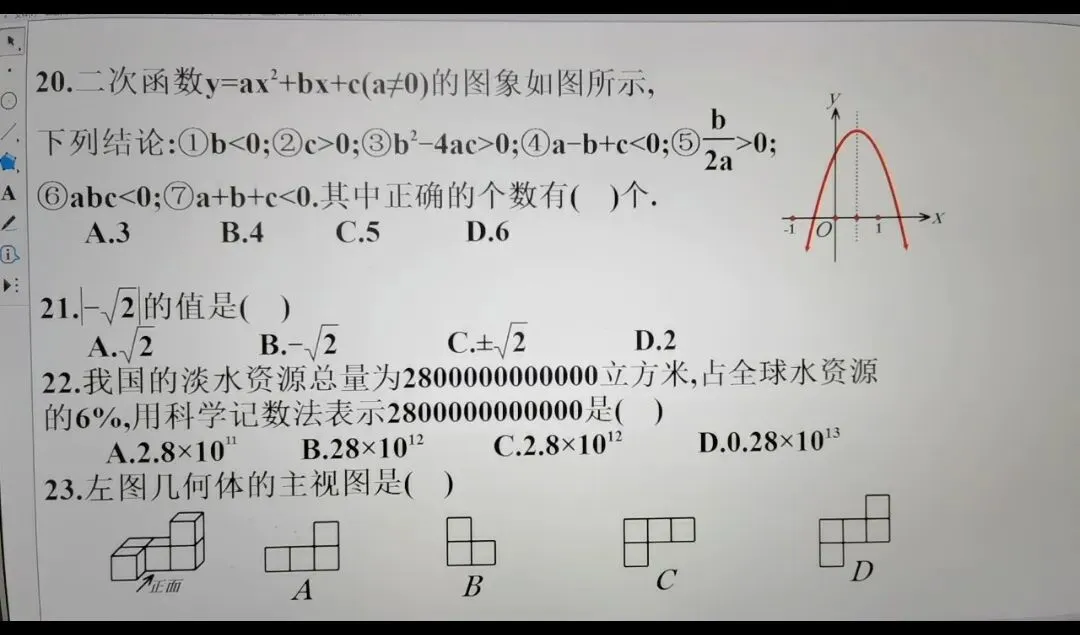 20.二次函数y=ax²+bx+c(a≠0)的图象如图所示,
下列结论:①b<0;②c>0;③b²-4ac>0;④a-b+c<0;⑤b/2a>0;
⑥abc<0;⑦a+b+c<0.其中正确的个数有( )个.
A.3 B.4 C.5 D.6
y
x
-1 O 1
21.|-√2|的值是( )
A.√2 B.-√2 C.±√2 D.2
22.我国的淡水资源总量为2800000000000立方米,占全球水资源
的6%,用科学记数法表示2800000000000是( )
A.2.8×10¹¹ B.28×10¹² C.2.8×10¹² D.0.28×10¹³
23.左图几何体的主视图是( )
正面 A B C D